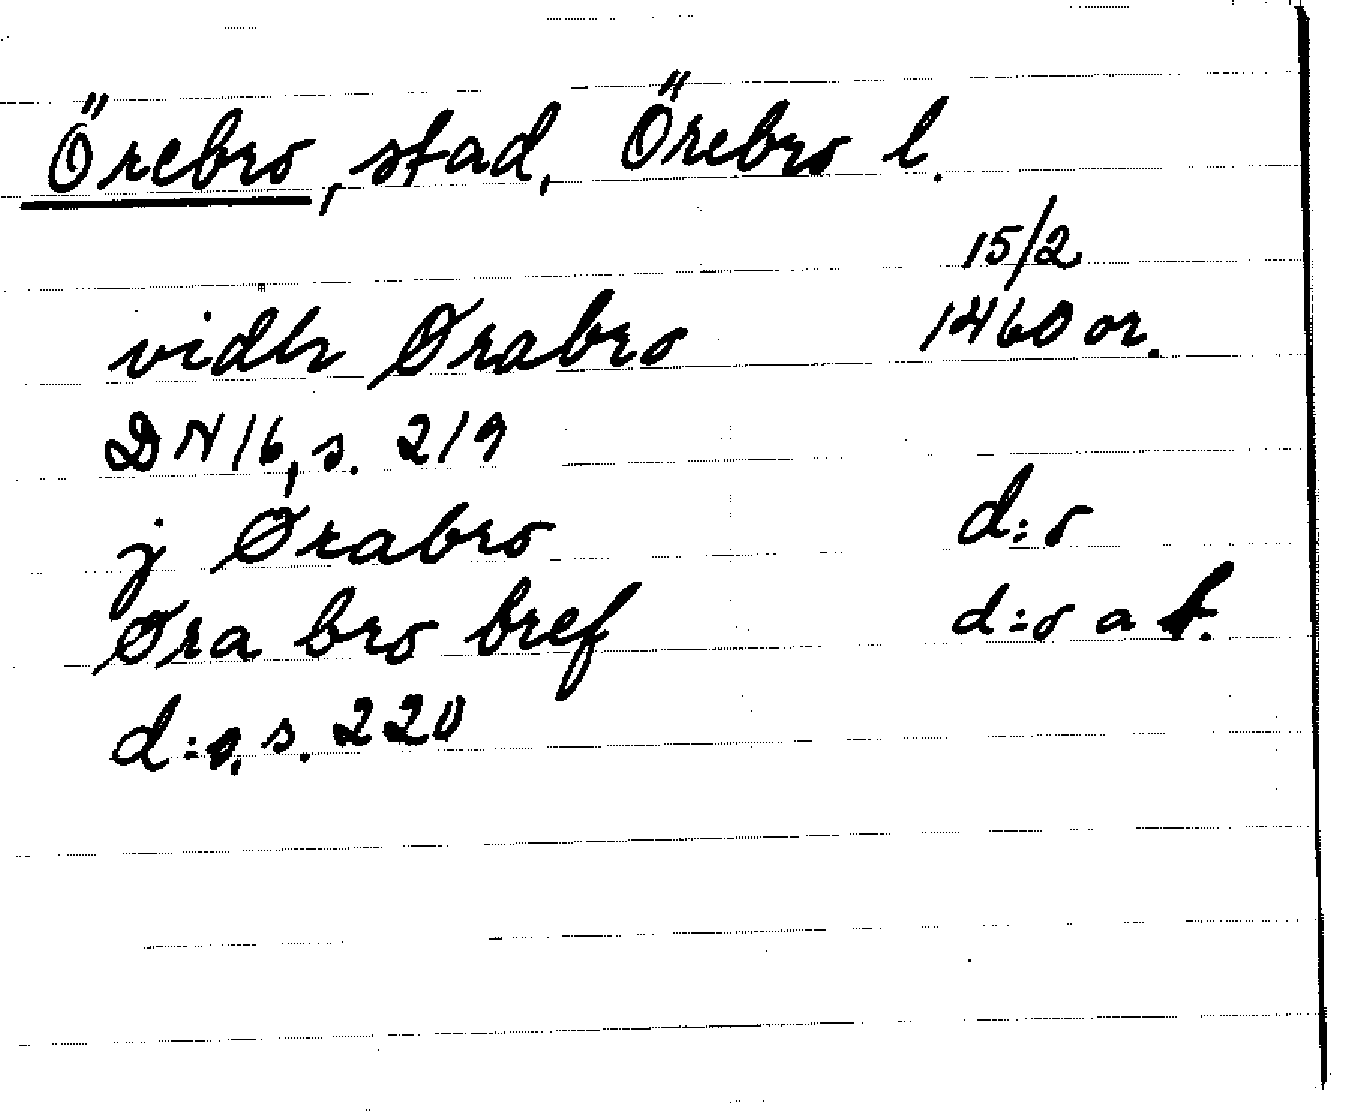 Örebro, stad, Örebro l.
15/2
vidh Ørabro 1460 or.
DN 16, s. 219
j Ørabro d:o
Øra bro bref d:o a t.
d:o, s. 220